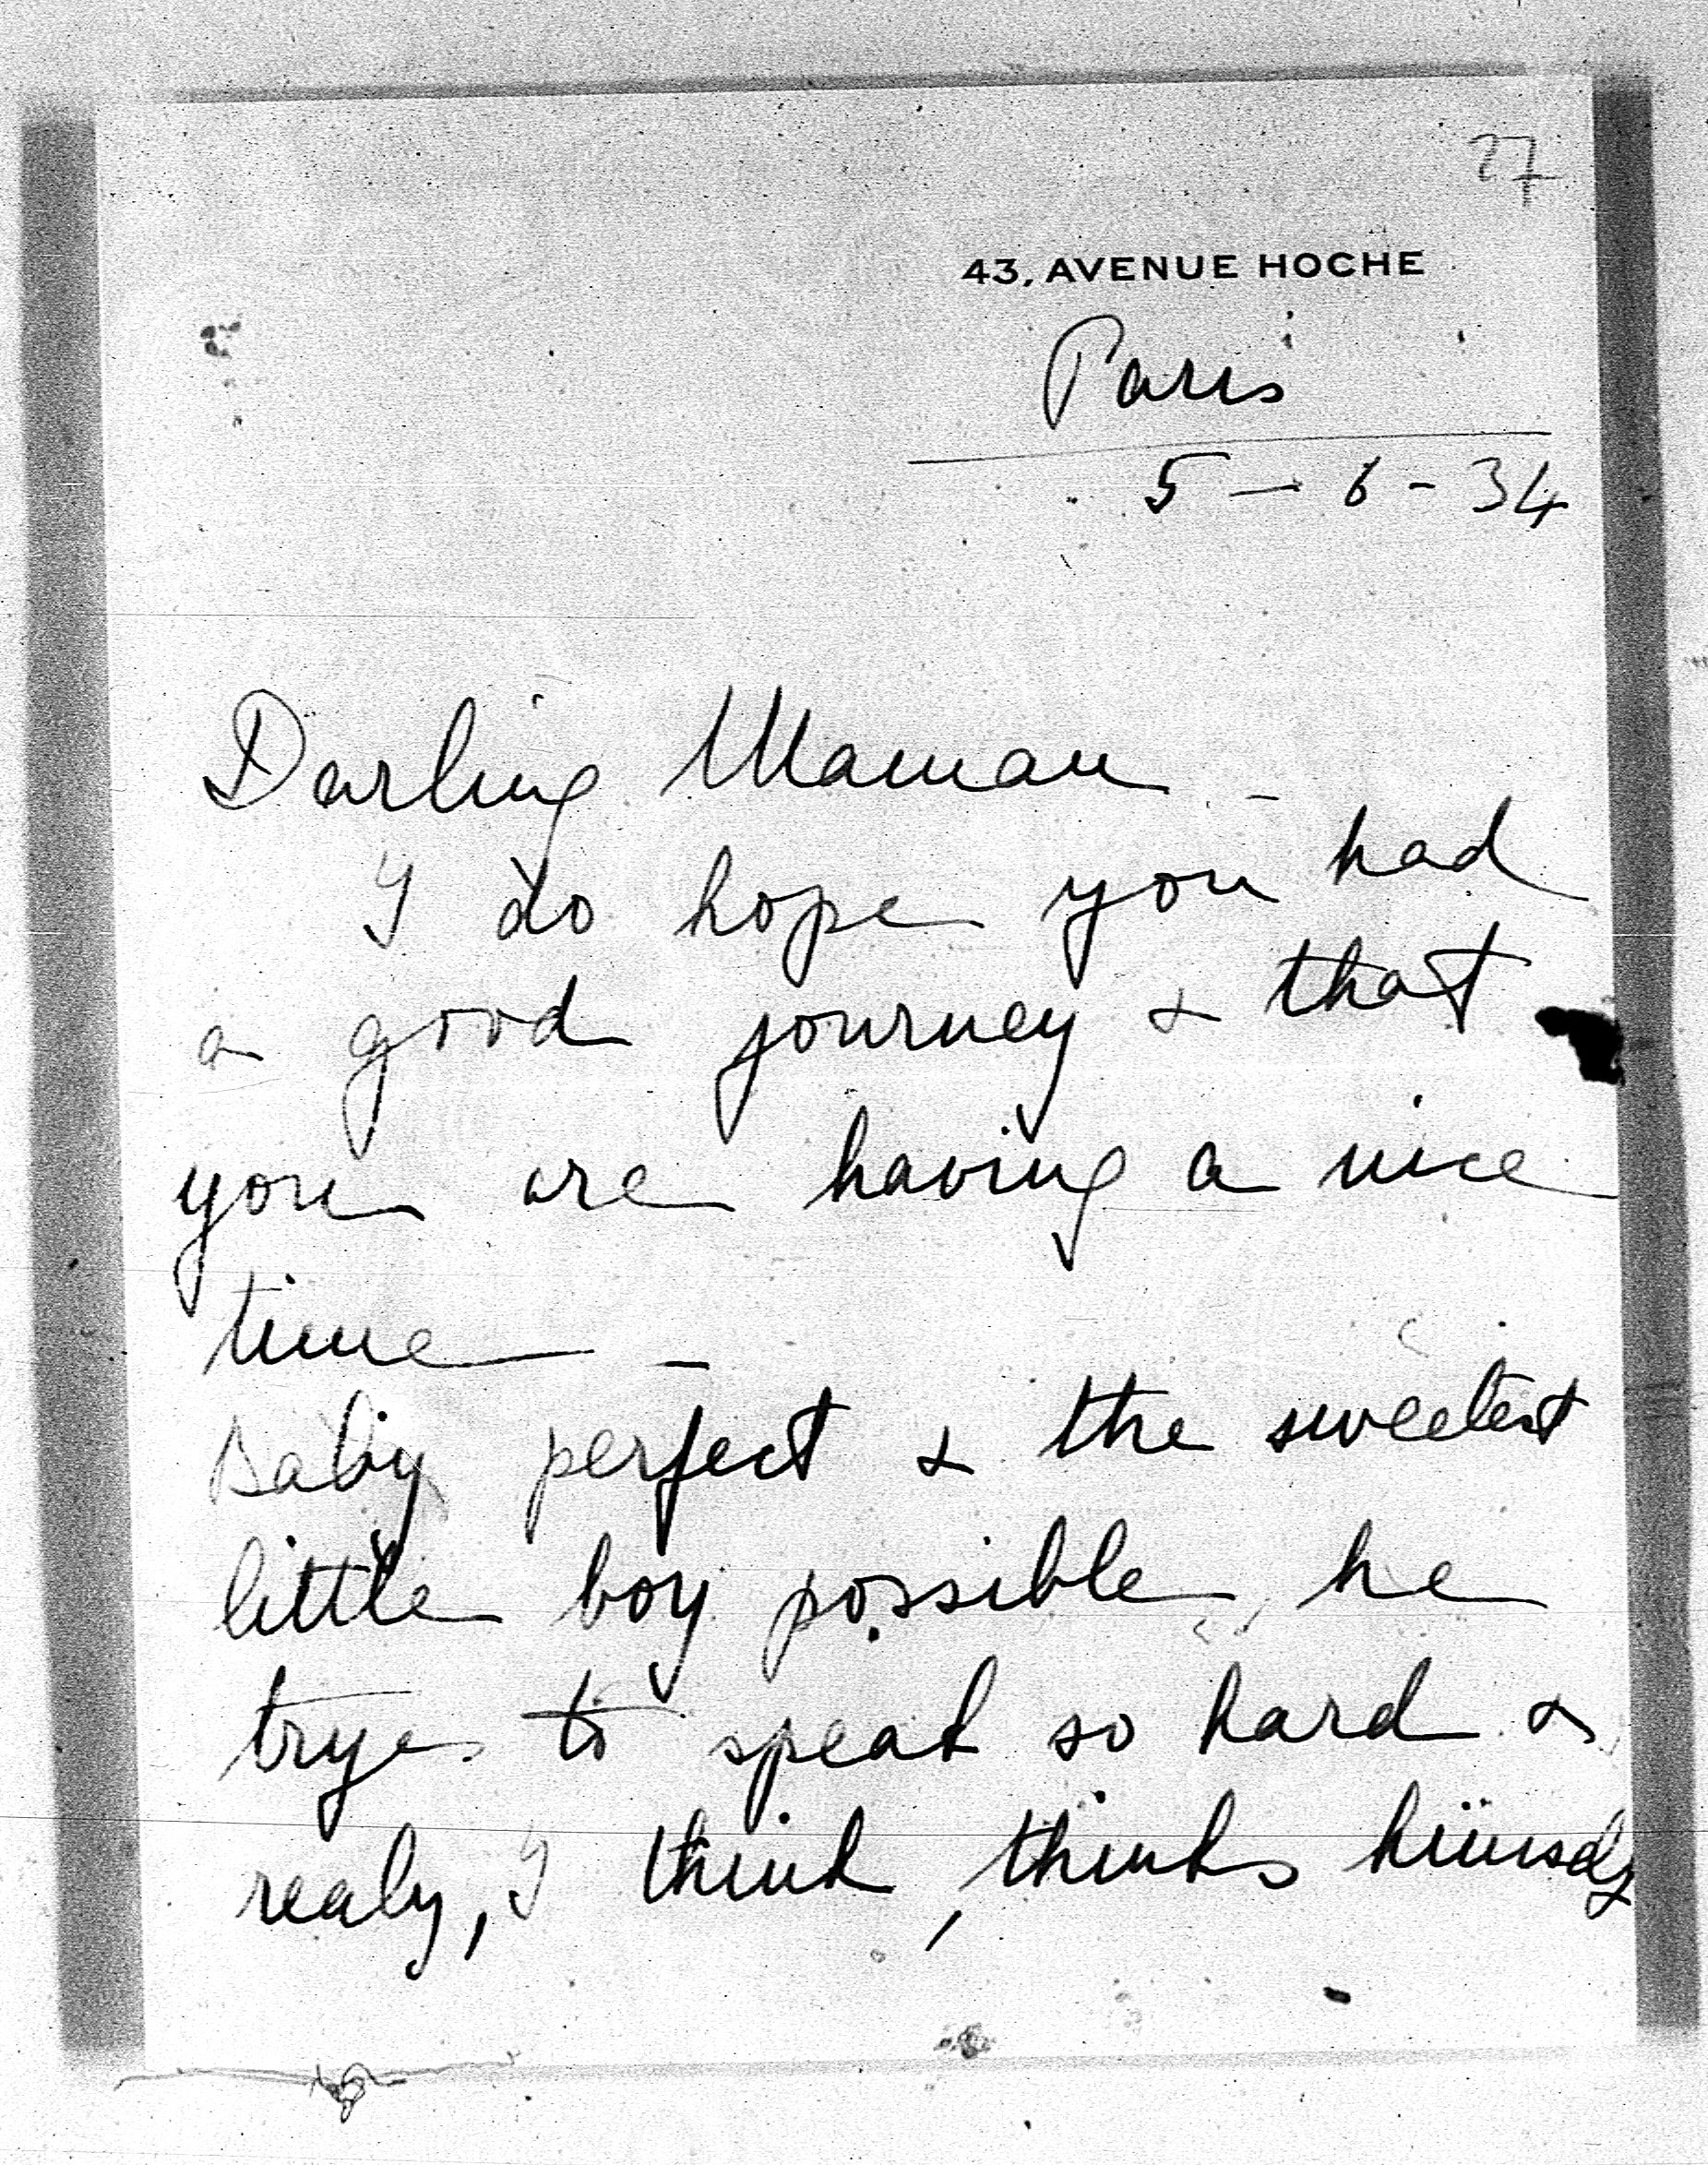 27
43, AVENUE HOCHE
Paris
5 - 6 - 34
Darling Maman -
I do hope you had
a good journey & that
you are having a nice
time -
Baby perfect & the sweetest
little boy possible, he
tryes to speak so hard &
realy, I think, thinks himself